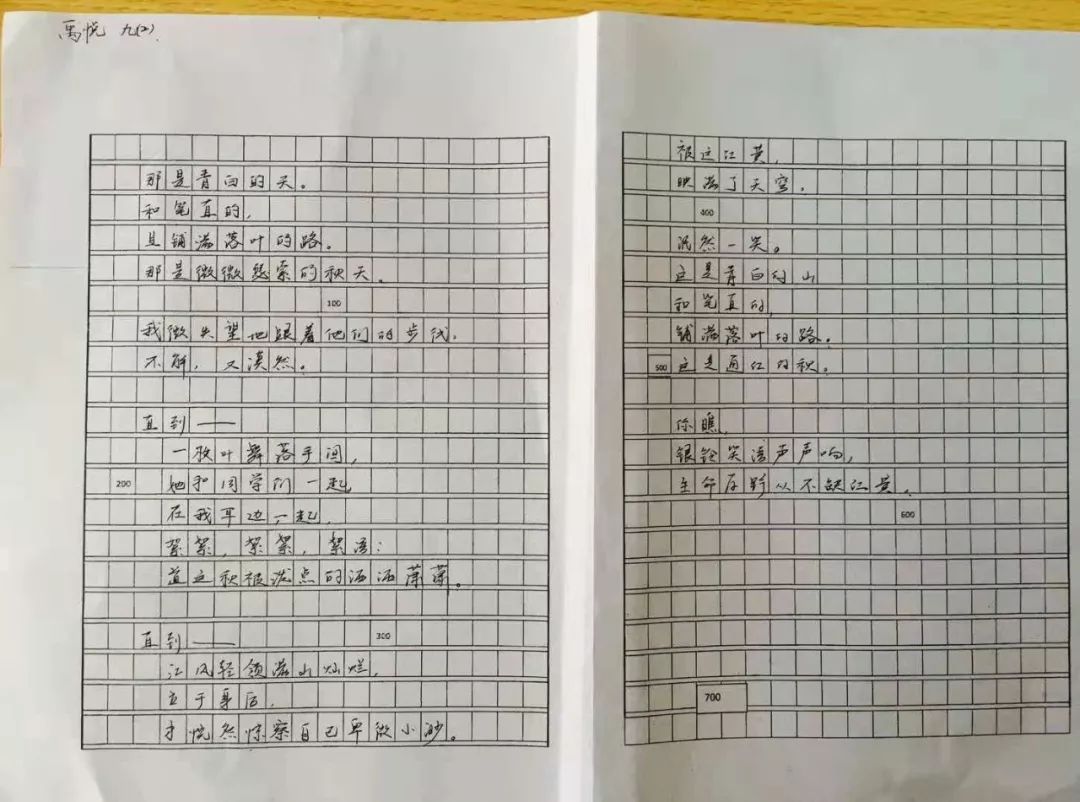 禹悦 九(2)
那是青白的天。
和笔直的,
且铺满落叶的路。
那是微微萧索的秋天。
100
我微失望地跟着他们的步伐,
不解,又漠然。
直到——
一枚叶舞落手间,
200 她和同学们一起
在我耳边,一起,
絮絮,絮絮,絮语:
道这秋被泼点的洒洒潇潇。
直到—— 300
江风轻领满山灿烂,
立于身后,
才恍然惊察自己卑微小渺。
被这红黄,
映满了天穹,
400
沉然一笑。
这是青白的山
和笔直的,
铺满落叶的路。
500 这是通红的秋。
你瞧,
银铃笑语声声响,
生命存 从不缺红黄。
600
700